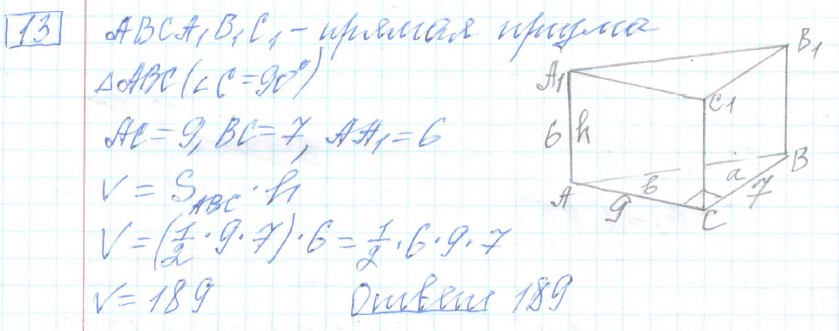 13 ABCA₁B₁C₁ - прямая призма
△ABC (∠C=90°)
AC=9, BC=7, AA₁=6
V = S_ABC · h
V = (1/2 · 9 · 7) · 6 = 1/2 · 6 · 9 · 7
V = 189 Ответ 189
B₁
A₁
C₁
6 h
B
a
в
7
A
9
C